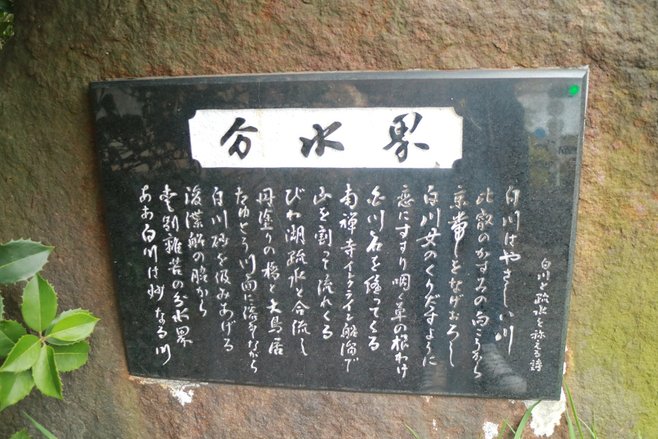 分水界
白川と疏水を称える詩
白川はやさしい川
比叡のかすみの向こうから
京帯しをなげおろし
白川女のくりだすように
恋にすすり咽く草の根わけ
白川石を縫ってくる
南禅寺
山を割って流れくる
びわ湖疏水と合流し
丹塗りの橋と大鳥居
たゆとう川面に落しながら
白川砂を汲みあげる
浚渫船の脇から
愛別離苦の分水界
ああ白川は妙なる川